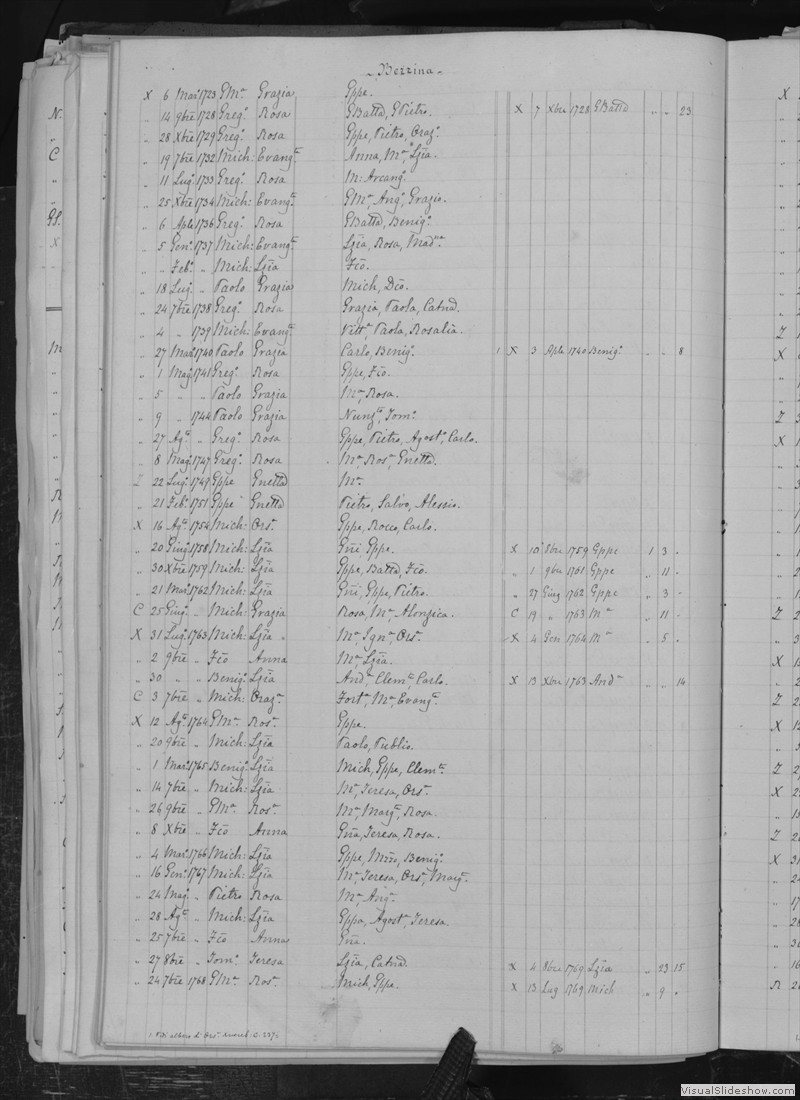 „ Bezzina „
X 6 Mar: 1723 GMª Grazia Gppe.
„ 14 9bre 1728 Greg: Rosa GBattª, GPietro. X 7 Xbre 1728 GBattª „ „ 23
„ 28 Xbre 1729 Greg: Rosa Gppe, Pietro, Oraz:
„ 19 7bre 1732 Mich: Evangª Anna, Mª, Lzia.
„ 11 Lug: 1733 Greg: Rosa M: Arcang:
„ 25 Xbre 1734 Mich: Evangª GMª, Ang: Grazio.
„ 6 Aple 1736 Greg: Rosa GBattª, Benig:
„ 5 Gen: 1737 Mich: Evangª Lzia, Rosa, Madª.
„ „ Feb: „ Mich: Lzia Fco.
„ 18 Lug: „ Paolo Grazia Mich, Dco.
„ 24 7bre 1738 Greg: Rosa Grazia, Paola, Catnª.
„ 4 „ 1739 Mich: Evangª Vittª, Paola, Rosalia.
„ 27 Mar: 1740 Paolo Grazia Carlo, Benig: 1 X 3 Aple 1740 Benig: „ „ 8
„ 1 Mag: 1741 Greg: Rosa Gppe, Fco.
„ 5 „ „ Paolo Grazia Mª, Rosa.
„ 9 „ 1744 Paolo Grazia Nunzª, Tom:
„ 27 Agº „ Greg: Rosa Gppe, Pietro, Agost: Carlo.
„ 8 Mag: 1747 Greg: Rosa Mª, Rosª, Gnettª.
Z 22 Lug: 1749 Gppe Gnettª Mª
„ 21 Feb: 1751 Gppe Gnettª Pietro, Salvº, Alessio.
X 16 Agº 1754 Mich: Orsª Gppe, Rocco, Carlo.
„ 20 Giug: 1758 Mich: Lzia Gni Gppe. X 10 8bre 1759 Gppe 1 3 „
„ 30 Xbre 1759 Mich: Lzia Gppe, Battª, Fco. „ 1 9bre 1761 Gppe „ 11 „
„ 21 Mar: 1762 Mich: Lzia Gni, Gppe, Pietro. „ 27 Giug 1762 Gppe „ 3 „
C 25 Giug: „ Mich: Grazia Rosa, Mª, Alonzica. C 19 „ 1763 Mª „ 11 „
X 31 Lug: 1763 Mich: Lzia „ Mª, Ignª, Orsª X 4 Gen 1764 Mª „ 5 „
„ 2 9bre „ Fco Anna Mª, Lzia.
„ 30 „ „ Benig: Lzia Andª, Clemª, Carlo. X 13 Xbre 1763 Andª „ „ 14
C 3 7bre „ Mich: Orazª Fortª, Mª, Evangª
X 12 Agº 1764 GMª Rosª Gppe.
„ 20 9bre „ Mich: Lzia Paolo, Publio.
„ 1 Mar: 1765 Benig: Lzia Mich, Gppe, Clemª.
„ 14 7bre „ Mich: Lzia Mª, Teresa, Orsª
„ 26 9bre „ GMª Rosª Mª, Margª, Rosa.
„ 8 Xbre „ Fco Anna Gna, Teresa, Rosa.
„ 4 Mar: 1766 Mich: Lzia Gppe, Mmo, Benig:
„ 16 Gen: 1767 Mich: Lzia Mª, Teresa, Orsª, Margª.
„ 24 Mag: „ Pietro Rosa Mª, Angª
„ 28 Agº „ Mich: Lzia Gppa, Agostª, Teresa.
„ 25 7bre „ Fco Anna Gna.
„ 27 8bre „ Tom: Teresa Lzia, Catnª. X 4 8bre 1769 Lzia „ 23 15
„ 24 7bre 1768 GMª Rosª Mich, Gppe. X 13 Lug 1769 Mich „ 9 „
VisualSlideshow.com